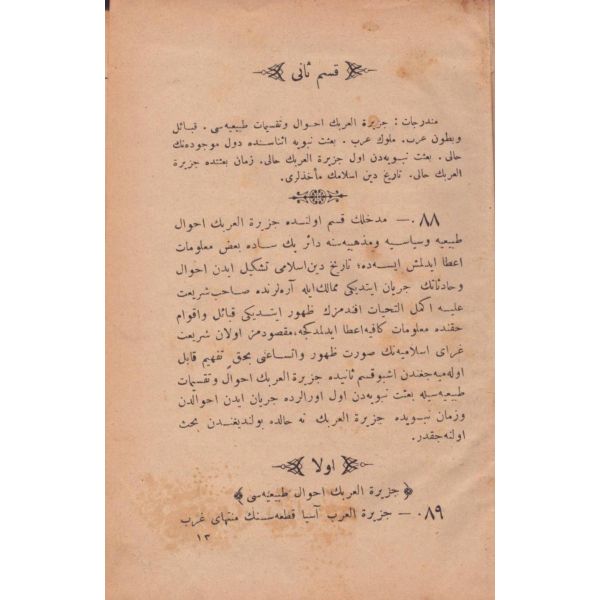 قسم ثانی
مندرجات : جزیرة العربك احوال وتقسیمات طبیعیه‌سی . قبائل
وبطون عرب . ملوك عرب . بعثت نبویه اثناسنده دول موجوده‌نك
حالی . بعثت نبویه‌دن اول جزیرة العربك حالی . زمان بعثتده جزیرة
العربك حالی . تاریخ دین اسلامك مأخذلری .
٨٨ — مدخلك قسم اولنده جزیرة العربك احوال
طبیعیه وسیاسیه ومذهبیه‌سنه دائر پك ساده بعض معلومات
اعطا ایدلمش ایسه‌ده ؛ تاریخ دین اسلامی تشکیل ایدن احوال
وحادثاتك جریان ایتدیکی ممالك ایله آره‌لرنده صاحب شریعت
علیه اکمل التحیات افندمزك ظهور ایتدیکی قبائل واقوام
حقنده معلومات کافیه اعطا ایدلمدکجه ، مقصودمز اولان شریعت
غرای اسلامیه‌نك صورت ظهور واتساعنی بحقٍ تفهیم قابل
اوله‌میه‌جغندن اشبو قسم ثانیده جزیرة العربك احوال وتقسیمات
طبیعیه‌سیله بعثت نبویه‌دن اول اورالرده جریان ایدن احوالدن
وزمان نبویده جزیرة العربك نه حالده بولندیغندن بحث
اولنه‌جقدر .
اولا
﴿ جزیرة العربك احوال طبیعیه‌سی ﴾
٨٩ — جزیرة العرب آسیا قطعه‌سنك منتهای غرب
١٣